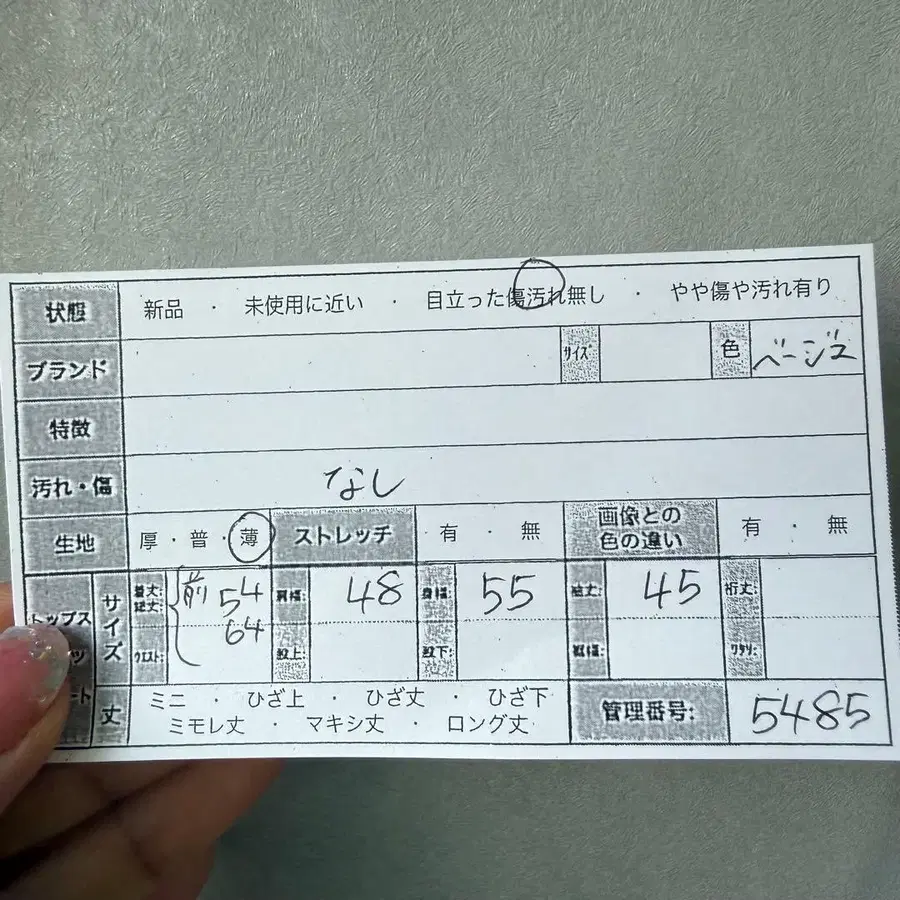 状態 新品 ・ 未使用に近い ・ 目立った傷汚れ無し ・ やや傷や汚れ有り
ブランド サイズ 色 ベージュ
特徴
汚れ・傷 なし
生地 厚・普・薄 ストレッチ 有 ・ 無 画像との色の違い 有 ・ 無
トップス サイズ 着丈: 総丈: 前 54 肩幅: 48 身幅: 55 袖丈: 45 裄丈:
64
ウエスト: 股上: 股下: 裾幅: ワタリ:
丈 ミニ ・ ひざ上 ・ ひざ丈 ・ ひざ下
ミモレ丈 ・ マキシ丈 ・ ロング丈
管理番号: 5485